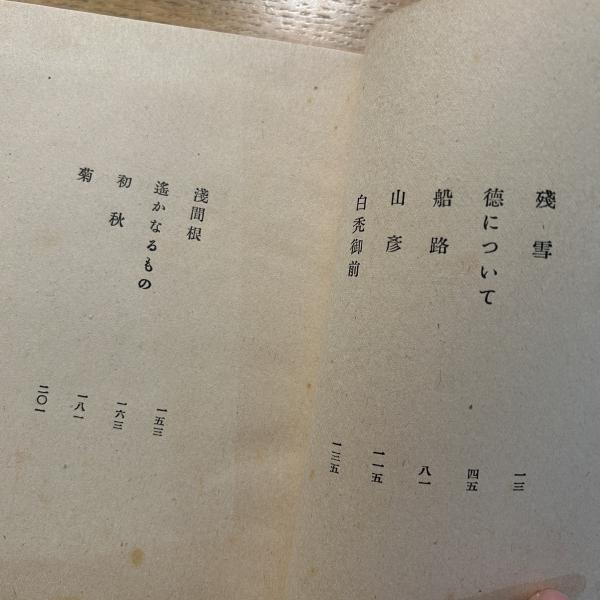 殘雪
一三
德について
四五
船路
八一
山彥
一一五
白禿御前
一三五
淺間根
一五三
遙かなるもの
一六三
初秋
一八一
菊
二〇一